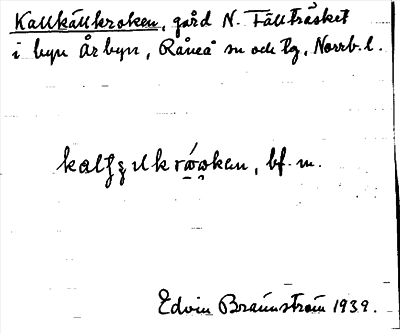 Kallkällkroken, gård N. Fällträsket
i byn Årbyn, Råneå sn och tg, Norrb. l.
bf. m.
Edvin Brännström 1939.